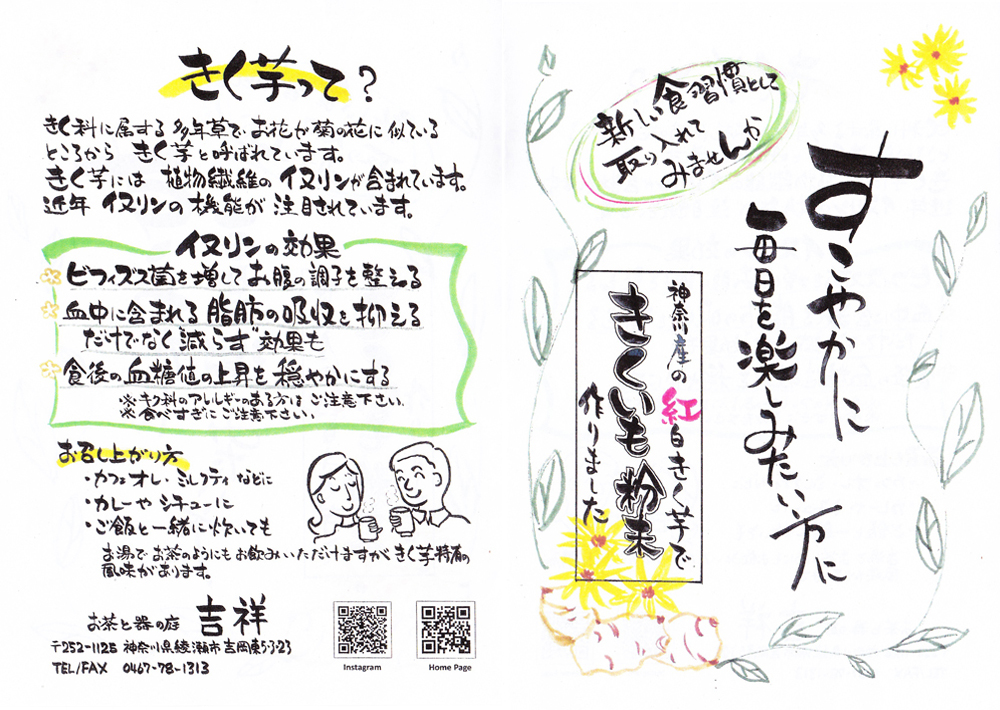 きく芋って?
きく科に属する多年草で、お花が菊の花に似ている
ところから きく芋と呼ばれています。
きく芋には 植物繊維のイヌリンが含まれています。
近年 イヌリンの機能が注目されています。
イヌリンの効果
ビフィズス菌を増してお腹の調子を整える
血中に含まれる脂肪の吸収を抑える
だけでなく減らす効果も
食後の血糖値の上昇を穏やかにする
※キク科のアレルギーのある方は ご注意下さい.
※食べすぎにご注意下さい.
お召し上がり方
・カフェオレ・ミルクティなどに
・カレーや シチューに
・ご飯と一緒に炊いても
お湯でお茶のようにもお飲みいただけますがきく芋特有の
風味があります。
お茶と器の店 吉祥
〒252-1125 神奈川県綾瀬市吉岡東5-3-23
TEL/FAX 0467-78-1313
Instagram
Home Page
新しい食習慣として
取り入れて
みませんか
すこやかに
毎日を楽しみたい方に
神奈川産の紅白きく芋で
きくいも粉末
作りました